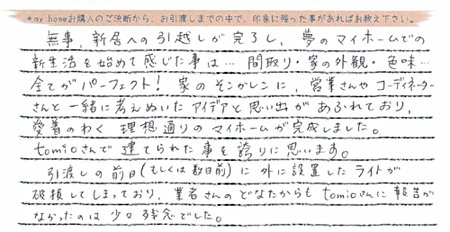 *my homeお購入のご決断から、お引渡しまでの中で、印象に残った事があればお教え下さい。
無事、新居への引越しが完了し、夢のマイホームでの
新生活を始めて感じた事は… 間取り・家の外観・色味…
全てがパーフェクト! 家のそこかしこに、営業さんやコーディネーター
さんと一緒に考えぬいたアイデアと思い出があふれており、
愛着のわく 理想通りのマイホームが完成しました。
tomioさんで建てられた事を誇りに思います。
引渡しの前日(もしくは数日前)に外に設置したライトが
破損してしまっており、業者さんのどなたからもtomioさんに報告が
なかったのは少々残念でした。